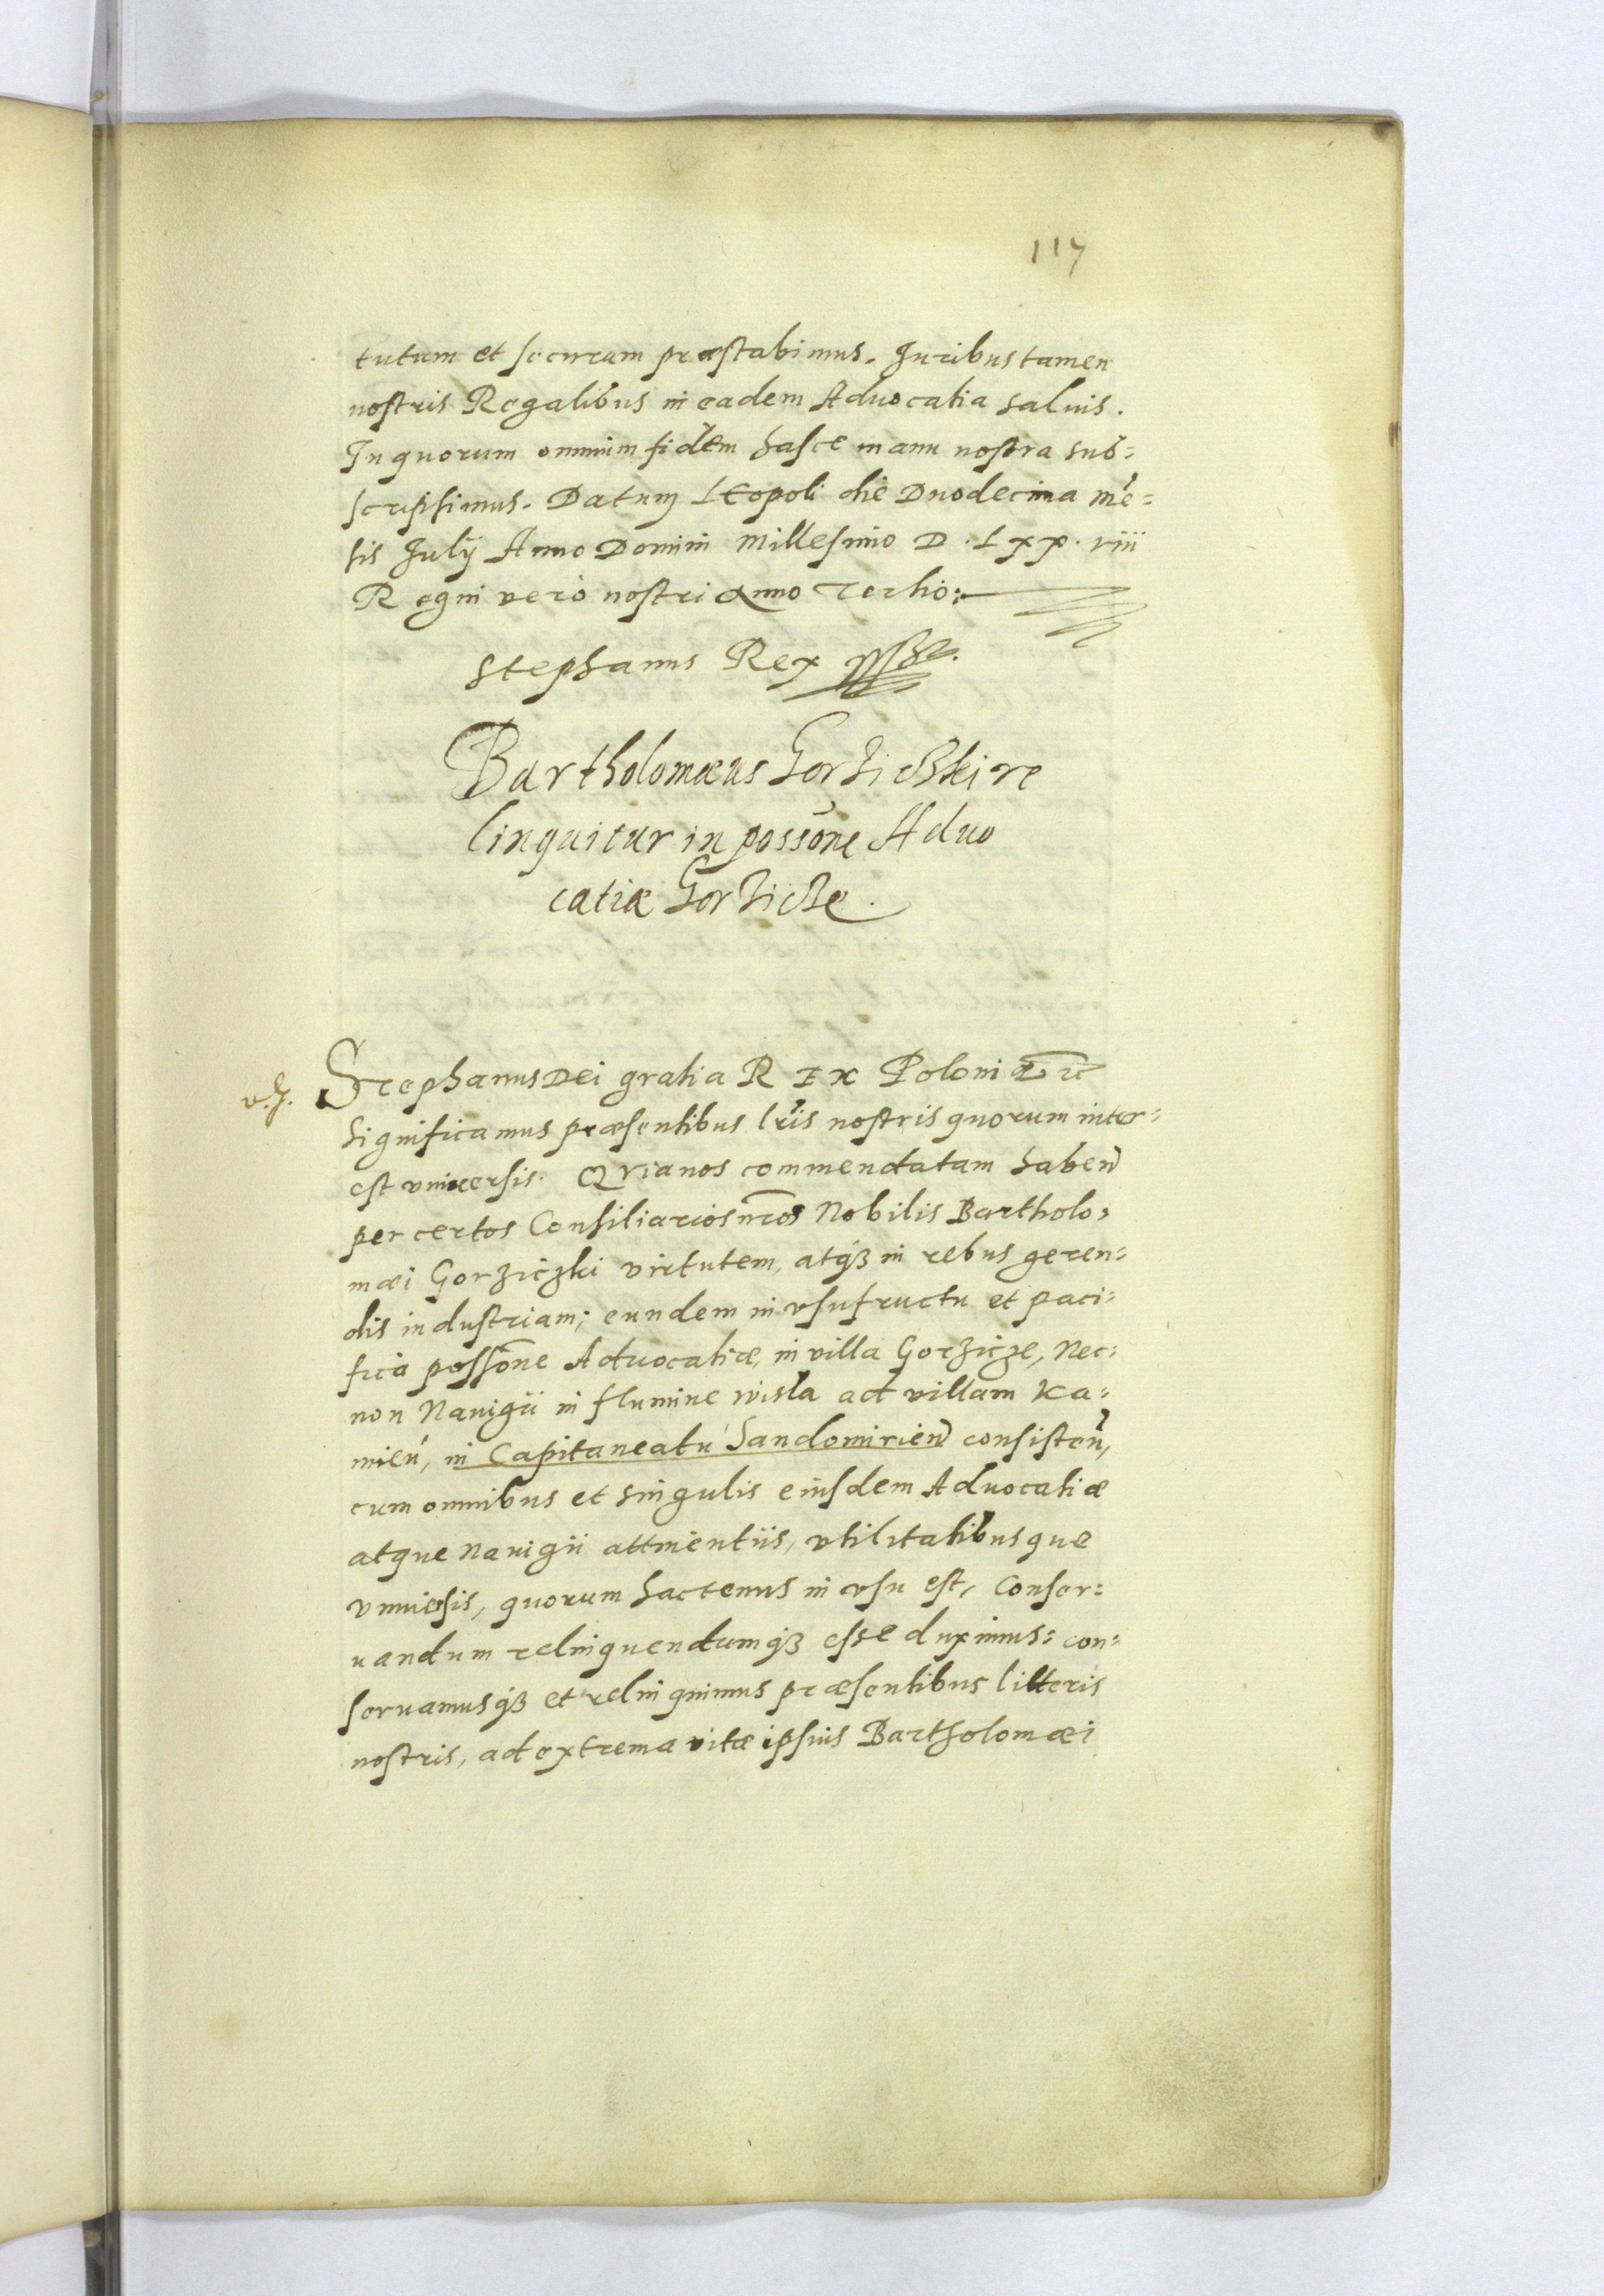 117
tutum et securum præstabimus. Juribus tamen
nostris Regalibus in eadem Aduocatia saluis.
In quorum omnium fidem hasce manu nostra sub=
scripsimus. Datum LEopoli die Duodecima mẽ=
sis Julÿ Anno Domini Millesimo D. Lxx. viii
Regni vero nostri Anno Tertio:
Stephanus Rex
Bartholomæus Gorzickki re
linquitur in possõne Aduo
catiæ Gorzicze.
Stephanus Dei gratia REx Poloniæ
Significamus præsentibus lr̃is nostris quorum inter=
est vniuersis. Qvia nos commendatam haben̄
per certos Consiliarios nr̃os Nobilis Bartholo=
mæi Gorziczki virtutem, atq3 in rebus geren=
dis industriam; eundem in vsufructu et paci=
fica possõne Aduocatiæ, in villa Gorzicze, Nec=
non Nauigii in flumine Wisla ad villam Ka=
mień, in Capitaneatu Sandomirien̄ consisten̄,
cum omnibus et singulis eiusdem Aduocatiæ
atque Nauigii attinentiis, vtilitatibusque
vniuersis, quorum hactenus in vsu est, Conser=
uandum relinquendumq3 esse duximus: con=
seruamusq3 et relinquimus præsentibus litteris
nostris, ad extrema vitæ ipsius Bartholomæi